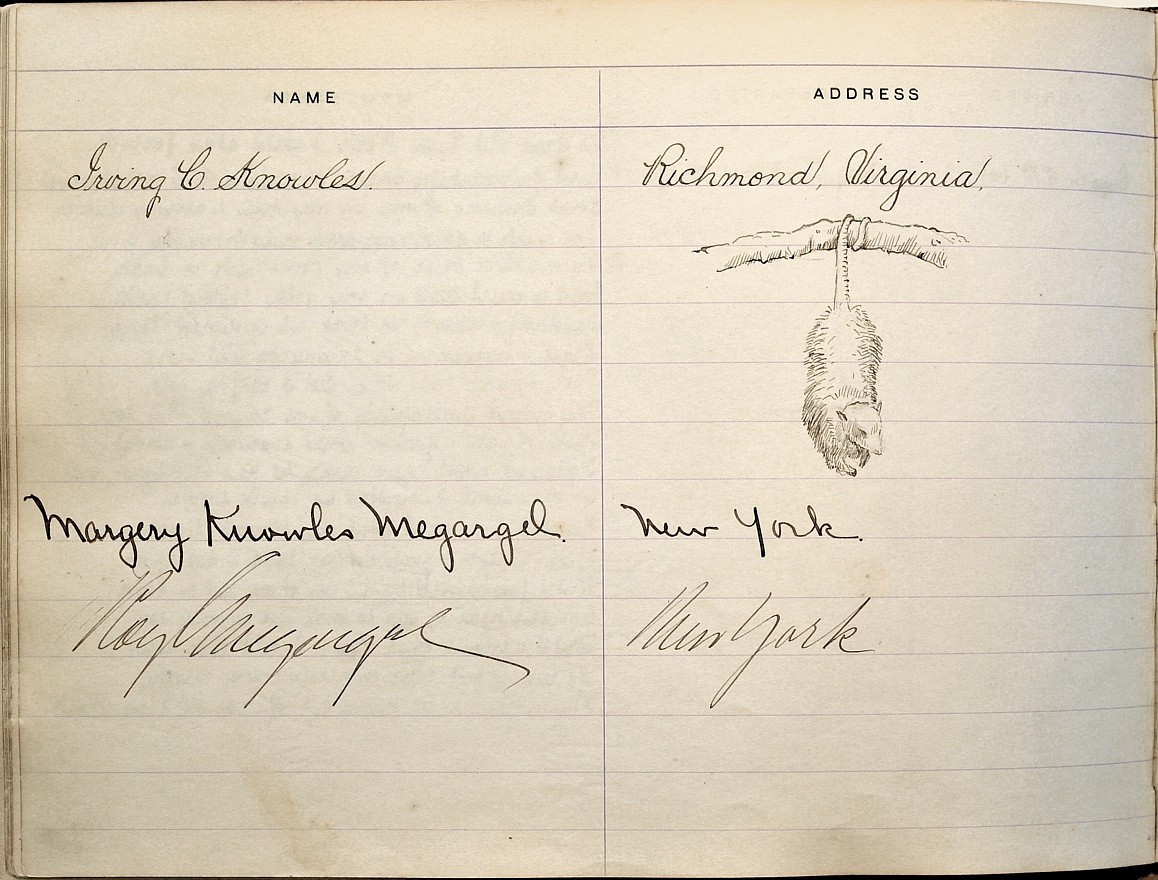 NAME ADDRESS
Irving C. Knowles. Richmond, Virginia.
Margery Knowles Megargel. New York.
Roy Megargel New York